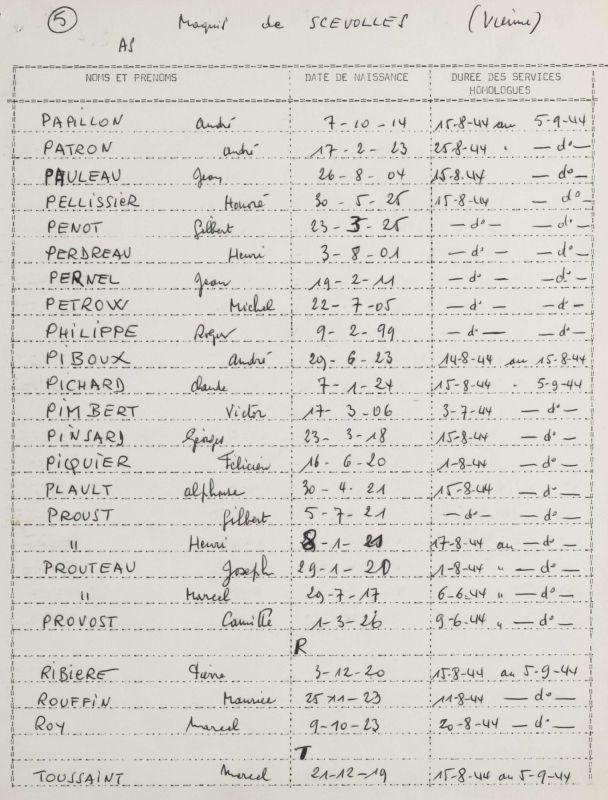 5 Maquis de SCEVOLLES (Vienne)
AS
NOMS ET PRENOMS DATE DE NAISSANCE DUREE DES SERVICES
HOMOLOGUES
PAPILLON André 7-10-14 15-8-44 au 5-9-44
PATRON André 17-2-23 25-8-44 " — d° —
PAULEAU Jean 26-8-04 15.8.44 — d° —
PELLISSIER Honoré 30-5-25 15-8-44 — d° —
PENOT Gilbert 23-3-25 — d° — — d° —
PERDREAU Henri 3-8-01 — d° — — d° —
PERNEL Jean 19-2-11 — d° — — d° —
PETROW Michel 22-7-05 — d° — — d° —
PHILIPPE Roger 9-2-99 — d° — — d° —
PIBOUX André 29-6-23 14-8-44 au 15-8-44
PICHARD Claude 7-1-24 15-8-44 " 5-9-44
PIMBERT Victor 17-3-06 3-7-44 — d° —
PINSARD Georges 23-3-18 15-8-44 — d° —
PICQUIER Félicien 16-6-20 1-8-44 — d° —
PLAULT Alphonse 30-4-21 15-8-44 — d° —
PROUST Gilbert 5-7-21 — d° — — d° —
" Henri 8-1-20 17-8-44 au — d° —
PROUTEAU Joseph 29-1-20 1-8-44 " — d° —
" Marcel 29-7-17 6-6-44 " — d° —
PROVOST Camille 1-3-26 9-6-44 " — d° —
R
RIBIERE Pierre 3-12-20 15-8-44 au 5-9-44
ROUFFIN Maurice 25-11-23 11-8-44 — d° —
ROY Marcel 9-10-23 20-8-44 — d° —
T
TOUSSAINT Marcel 21-12-19 15-8-44 au 5-9-44